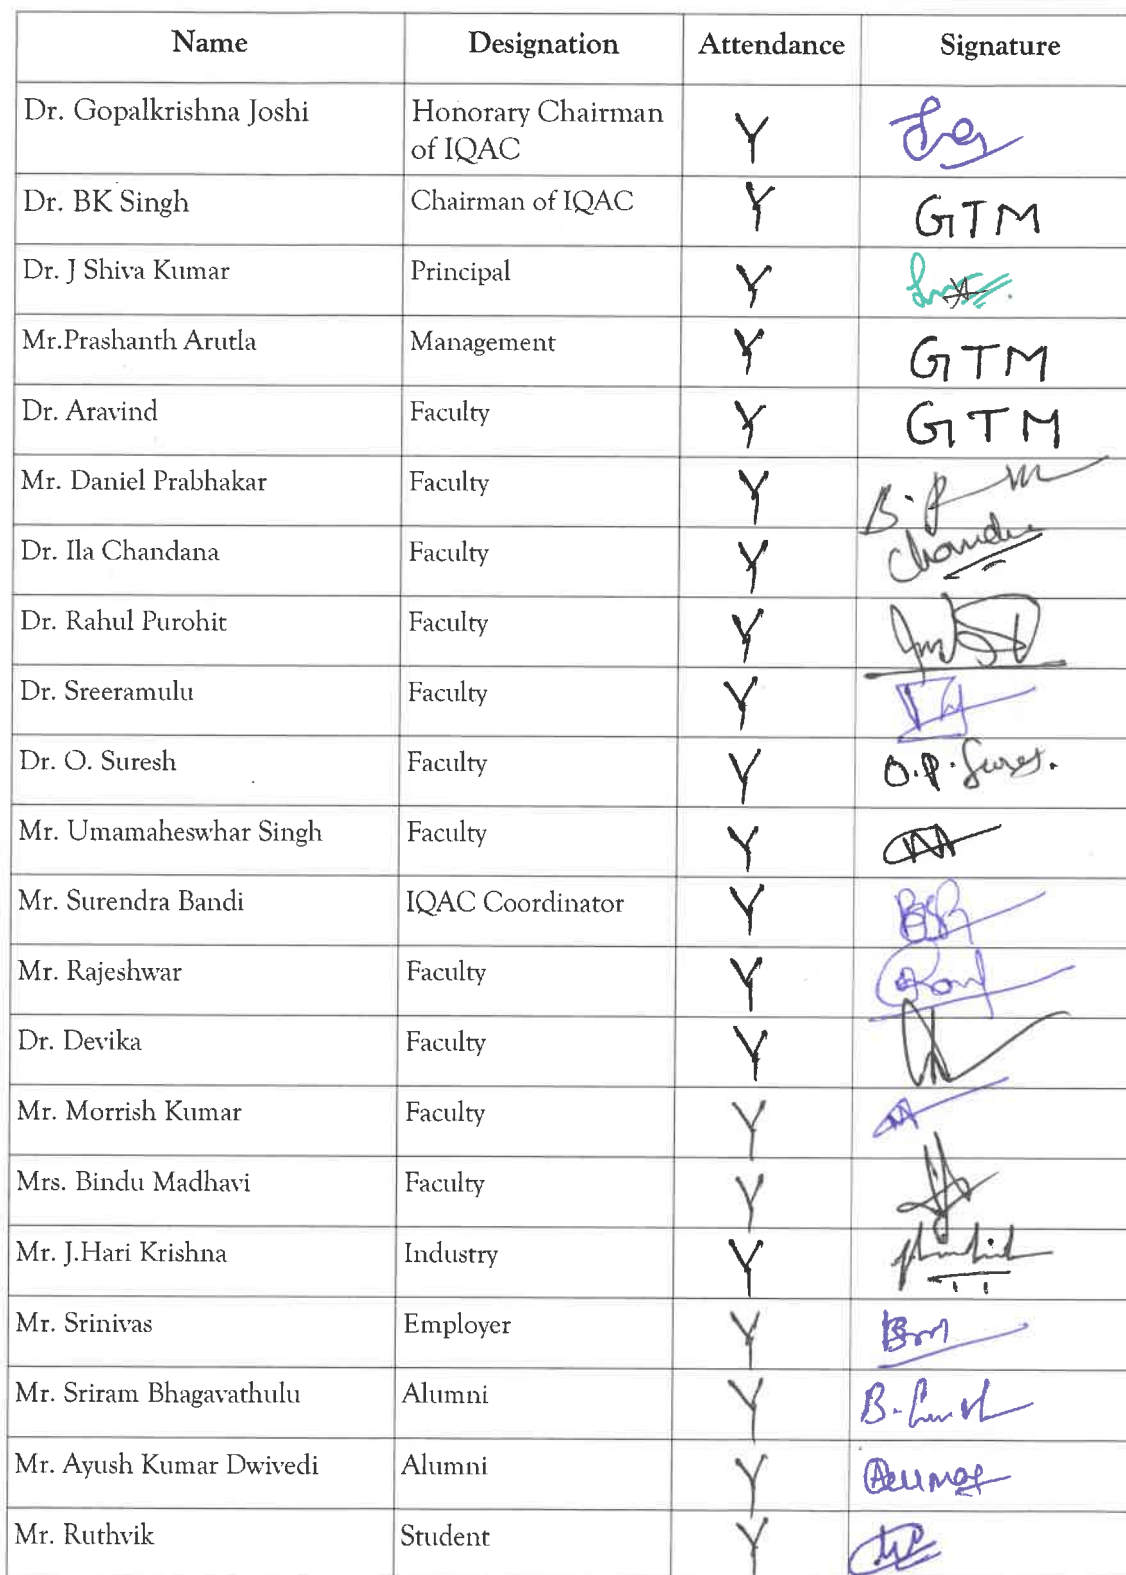 Name Designation Attendance Signature
Dr. Gopalkrishna Joshi Honorary Chairman Y
of IQAC
Dr. BK Singh Chairman of IQAC Y GTM
Dr. J Shiva Kumar Principal Y
Mr.Prashanth Arutla Management Y GTM
Dr. Aravind Faculty Y GTM
Mr. Daniel Prabhakar Faculty Y
Dr. Ila Chandana Faculty Y
Dr. Rahul Purohit Faculty Y
Dr. Sreeramulu Faculty Y
Dr. O. Suresh Faculty Y O.P.
Mr. Umamaheswhar Singh Faculty Y
Mr. Surendra Bandi IQAC Coordinator Y
Mr. Rajeshwar Faculty Y
Dr. Devika Faculty Y
Mr. Morrish Kumar Faculty Y
Mrs. Bindu Madhavi Faculty Y
Mr. J.Hari Krishna Industry Y
Mr. Srinivas Employer Y
Mr. Sriram Bhagavathulu Alumni Y
Mr. Ayush Kumar Dwivedi Alumni Y
Mr. Ruthvik Student Y